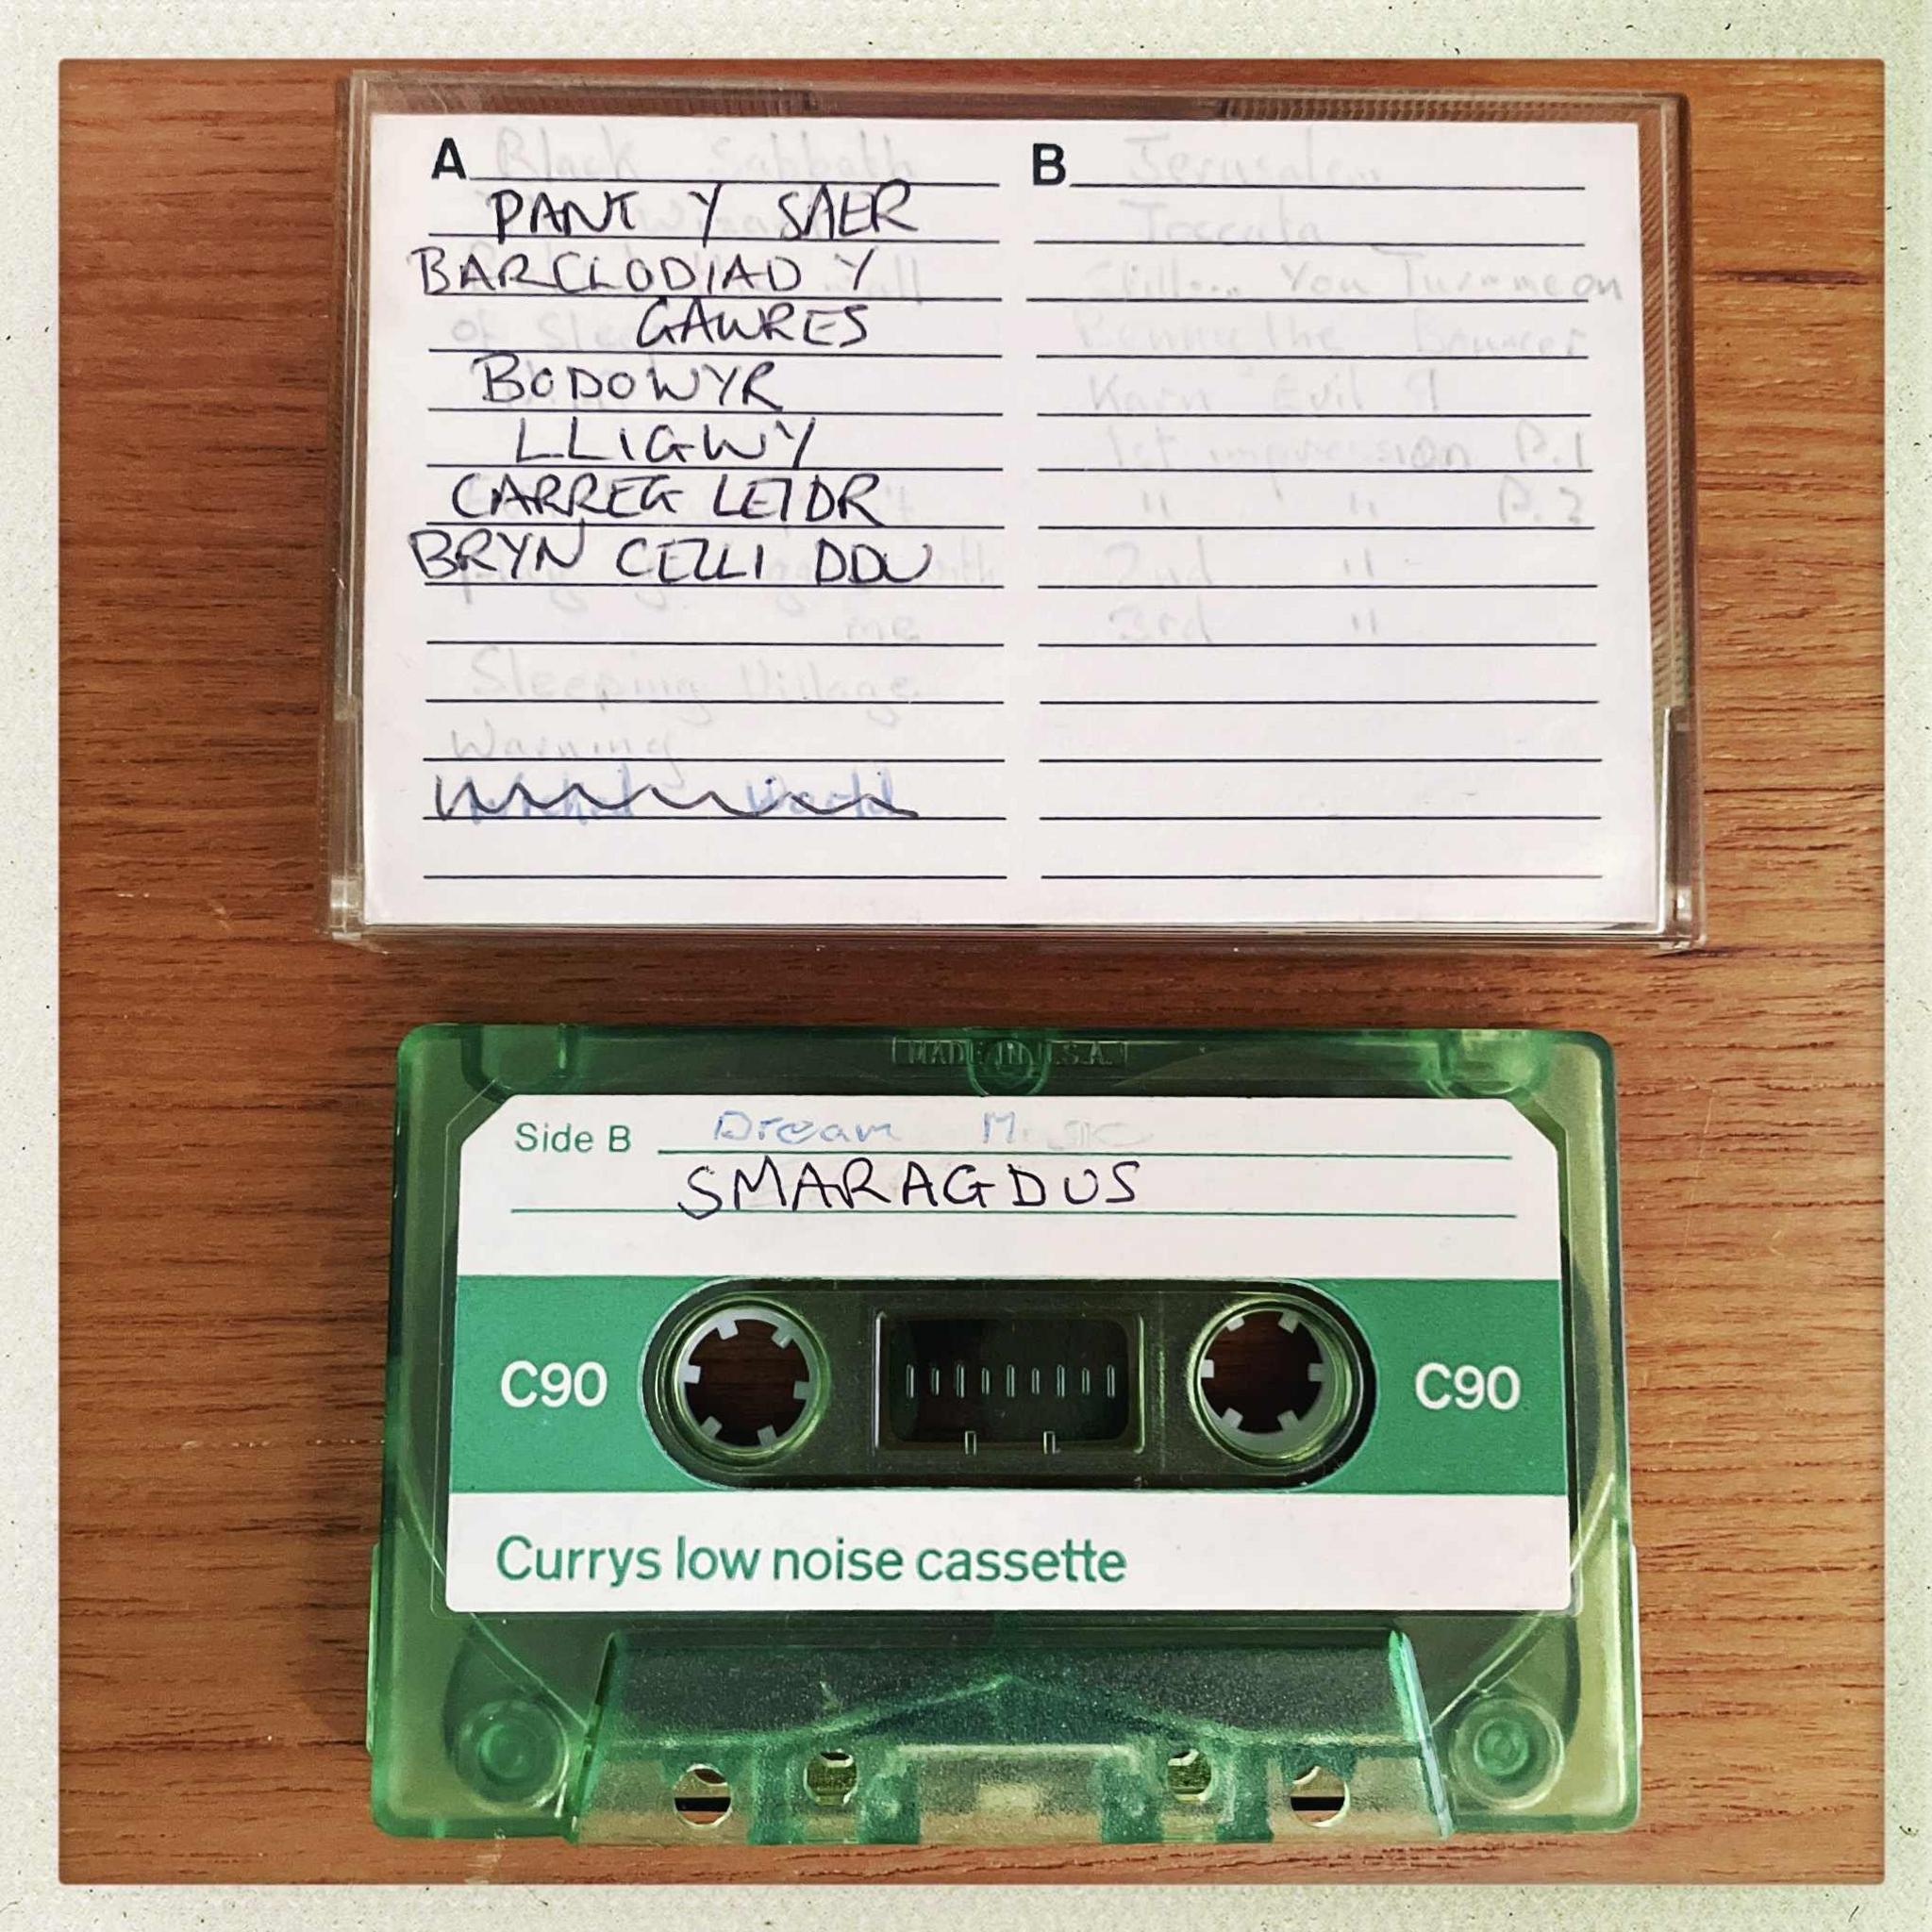 A Black Sabbath
PANT Y SAER
BARCLODIAD Y
GAWRES
of Sleep
BODOWYR
LLIGWY
CARREG LEIDR
BRYN CELLI DDU
with
me
Sleeping Village
Warning
World
B Jerusalem
Toccata
Still... You Turn me on
Benny the Bouncer
Karn Evil 9
1st impression P.1
" " P.2
2nd "
3rd "
MADE IN U.S.A.
Side B Dream Music
SMARAGDUS
C90 C90
Currys low noise cassette